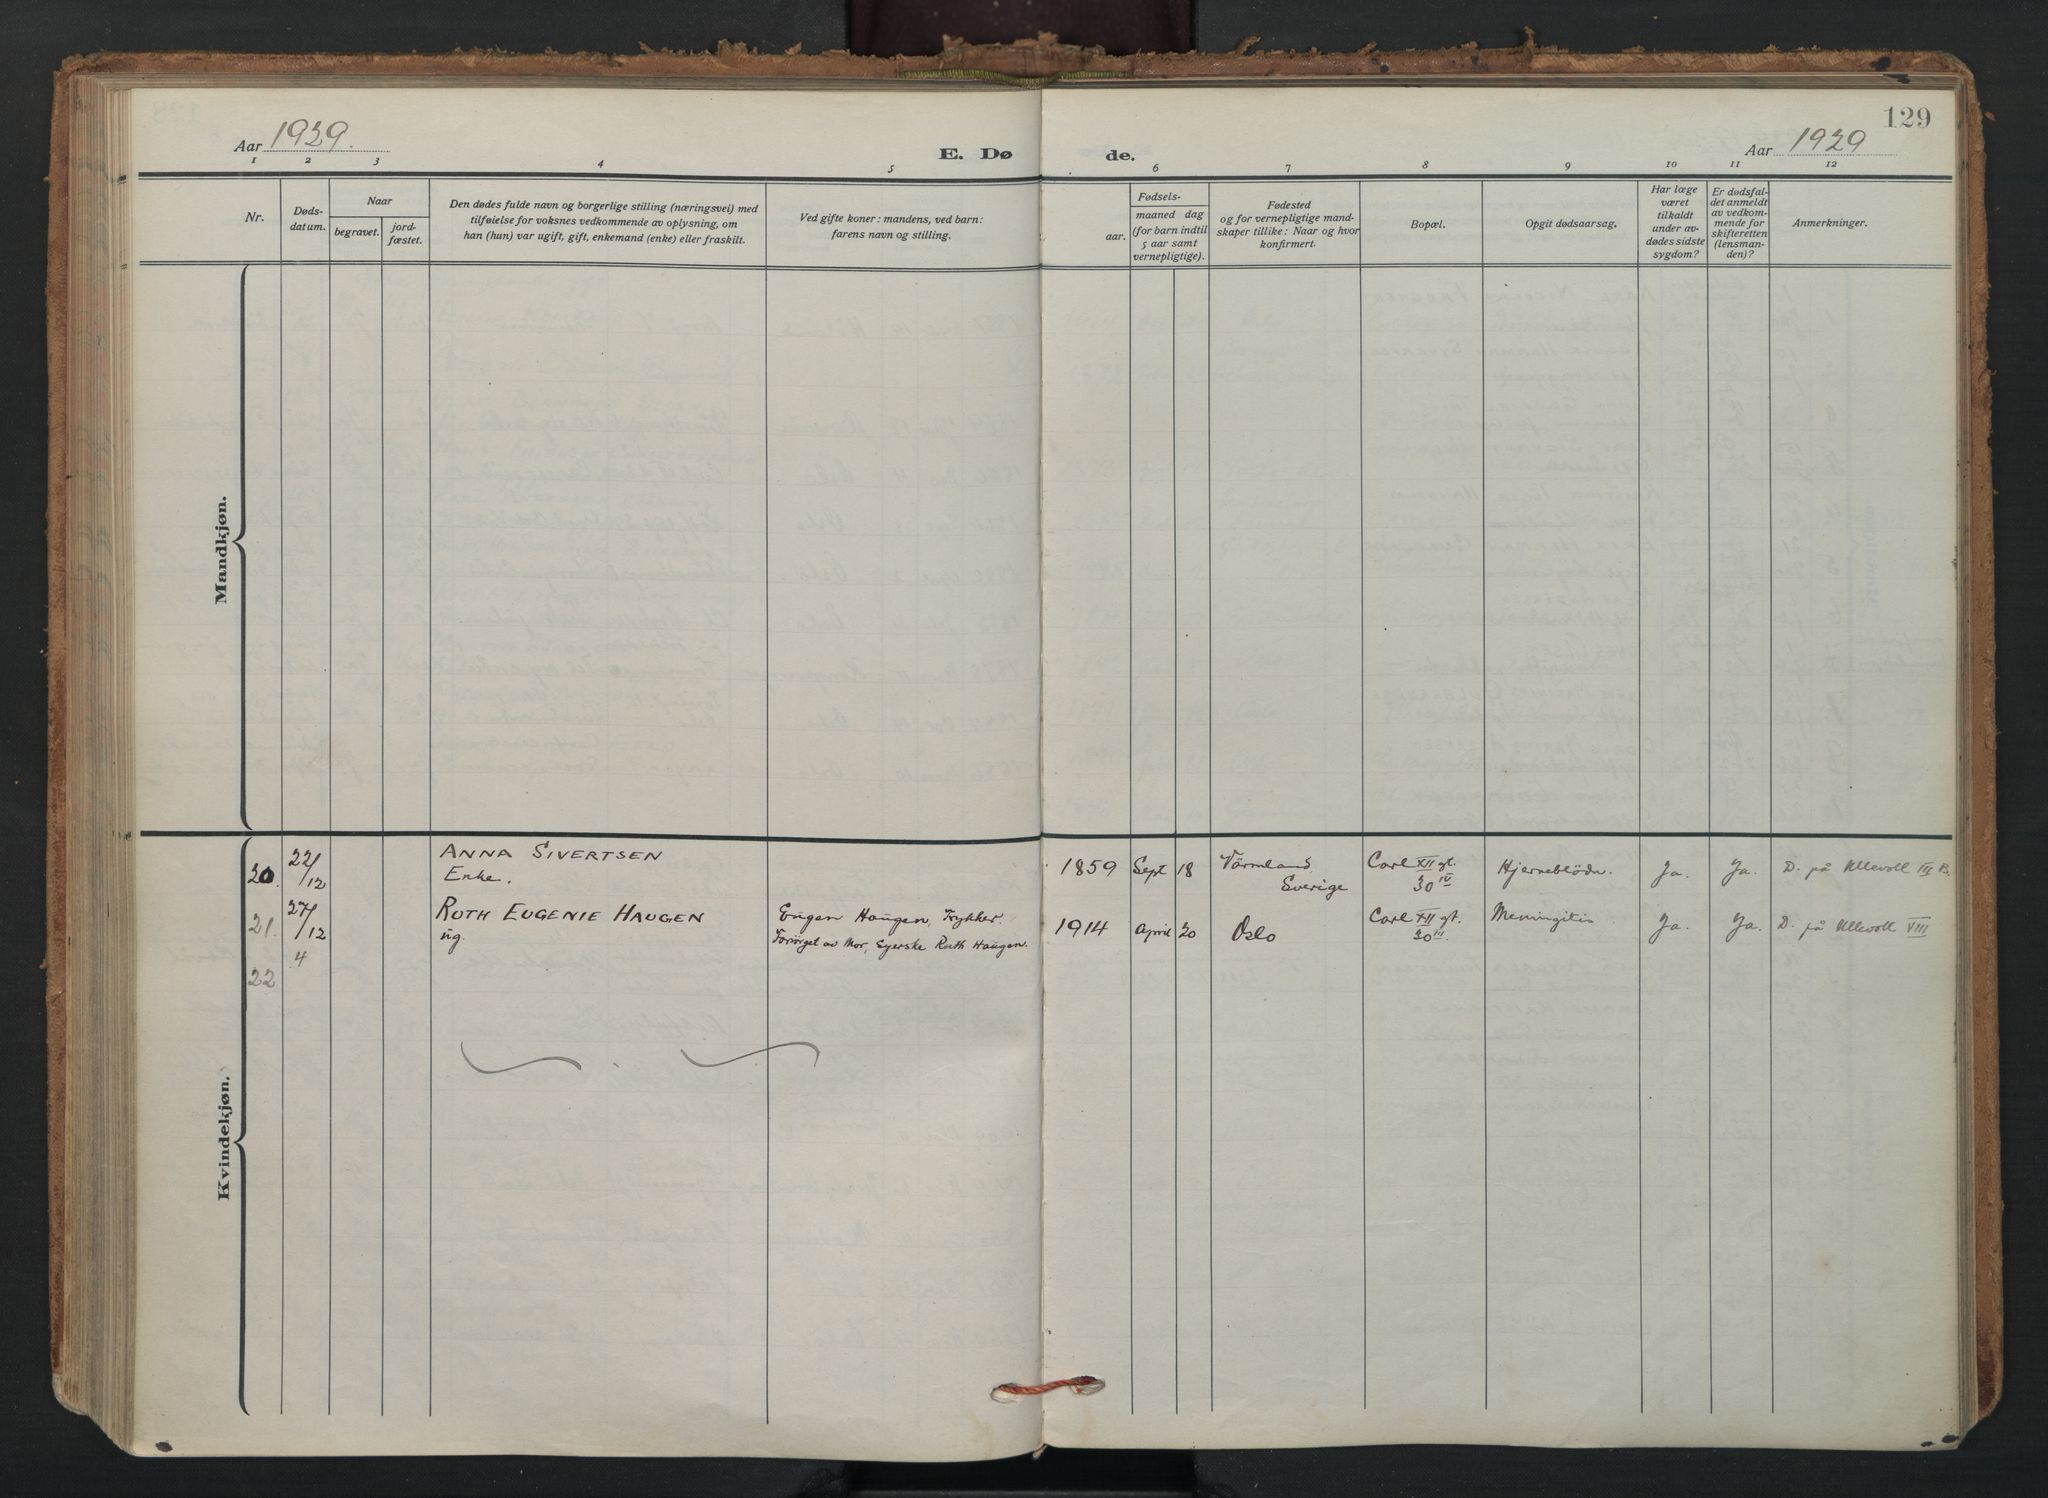 129
Aar 1929.
E. Døde.
Aar 1929
1 2 3 4 5 6 7 8 9 10 11 12
Nr.
Døds-
datum.
Naar
begravet.
jord-
fæstet.
Den dødes fulde navn og borgerlige stilling (næringsvei) med
tilføielse for voksnes vedkommende av oplysning, om
han (hun) var ugift, gift, enkemand (enke) eller fraskilt.
Ved gifte koner: mandens, ved barn:
farens navn og stilling.
Fødsels-
aar.
maaned dag
(for barn indtil
5 aar samt
vernepligtige).
Fødested
og for vernepligtige mand-
skaper tillike: Naar og hvor
konfirmert.
Bopæl.
Opgit dødsaarsag.
Har læge
været
tilkaldt
under av-
dødes sidste
sygdom?
Er dødsfal-
det anmeldt
av vedkom-
mende for
skifteretten
(lensman-
den)?
Anmerkninger.
Mandkjøn.
Kvindekjøn.
20. 22/12 ANNA SIVERTSEN
Enke.
1859 Sept 18 Värmland, Sverige
Carl XII gt. 30 IV
Hjerneblödn. Ja. Ja. D. på Ullevoll III B.
21. 27/12 RUTH EUGENIE HAUGEN
ug.
Eugen Haugen, Trykker.
Forsörget av Mor, Syerske Ruth Haugen.
1914 April 20 Oslo
Carl XII gt. 30 III.
Meningitis Ja. Ja. D. på Ullevoll VIII
22 4